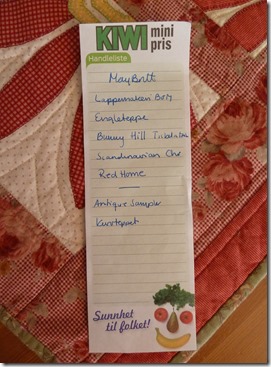 KIWI mini
pris
Handleliste
MayBritt
Lappemakeri
Engleteppe
Bunny Hill
Scandinavian
Red Home
Antique Sampler
Sunnhet
til folket!